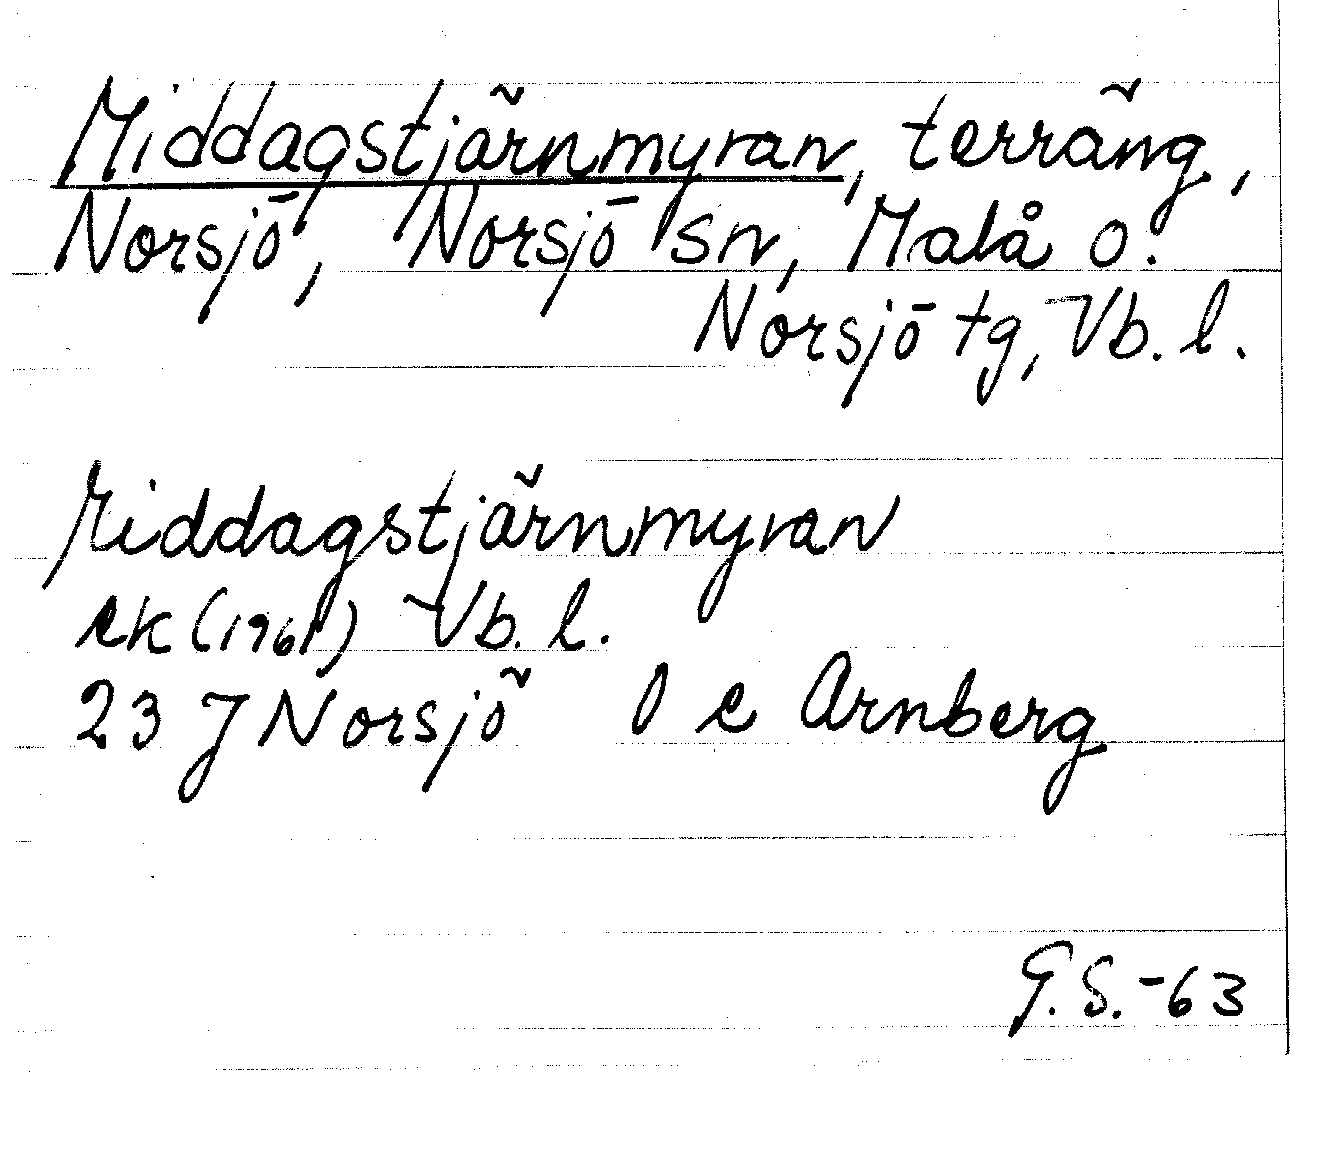 Middagstjärnmyran, terräng,
Norsjö, Norsjö sn, Malå o.
Norsjö tg, Vb. l.
Middagstjärnmyran
ek (1961) Vb. l.
23 J Norsjö 0 c Arnberg
G.S.-63